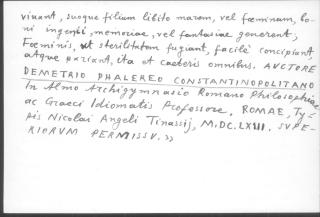 vivant, suoque filium libito marem, vel fœminam, bo-
ni ingenij, memoriae, vel fantasiae generent;
Fœminis, ut sterilitatem fugiant, facilè concipiant,
atque pariant, ita et caeteris omnibus. AUCTORE
DEMETRIO PHALEREO CONSTANTINOPOLITANO
In Almo Archigymnasio Romano Philosophiae
ac Graeci Idiomatis Professore. ROMAE, Ty=
pis Nicolai Angeli Tinassij, M.DC.LXIII. SVPE-
RIORVM PERMISSV. »